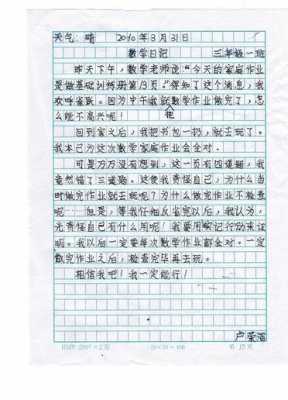 天气：晴 2010年3月31日
数学日记 三年级一班
昨天下午，数学老师说“今天的家庭作业
是做基础训练册第19页。”得知了这个消息，我
欢呼雀跃。因为中午我就把数学作业做完了，怎
么能不高兴呢！
回到家之后，我把书包一扔，就去玩了。
我本已为这次数学家庭作业会全对。
可是万万没有想到，这一页有四道题，我
竟然错了三道题。这使我责怪自己，为什么当
时做完作业就去玩呢？为什么做完作业不检查
呢 但是，等我仔细反省完以后，我认为，
光责怪自己有什么用呢！我要用行动来证
明。我以后一定要每次数学作业都全对。一定
做完作业之后，检查完毕再去玩。
相信我吧！我一定能行！